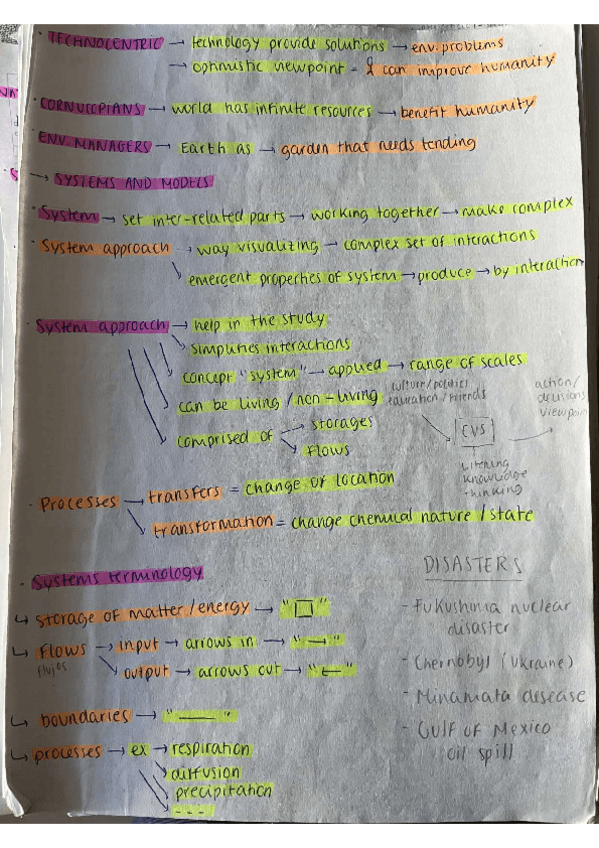 · TECHNOCENTRIC → technology provide solutions → env. problems
→ optimistic viewpoint = & can improve humanity
· CORNUCOPIANS → world has infinite resources → benefit humanity
· ENV. MANAGERS → Earth as → garden that needs tending
→ SYSTEMS AND MODELS
· System → set inter-related parts → working together → make complex
· System approach → way visualizing → complex set of interactions
↘ emergent properties of system → produce → by interaction
· System approach → help in the study
↘ simplifies interactions
↘ concept "system" → applied → range of scales
↘ can be living / non-living
↘ comprised of → storages
↘ flows
culture/politics
education/friends
EVS
action/
decisions
viewpoint
Listening
knowledge
thinking
· Processes → transfers = change of location
↘ transformation = change chemical nature / state
· Systems terminology
↳ storage of matter/energy → "□"
↳ Flows → input → arrows in → "→"
flujos
↘ output → arrows out → "←"
↳ boundaries → "——"
↳ processes → ex → respiration
↘ diffusion
↘ precipitation
↘ - - -
DISASTERS
- Fukushima nuclear
disaster
- Chernobyl (Ukraine)
- Minamata desease
- Gulf of Mexico
oil spill